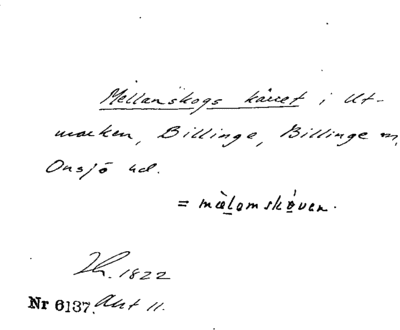 Mellanskogs kärret i Ut-
marken, Billinge, Billinge sn,
Onsjö hd.
= mälomskåven.
Lh. 1822
Nr 6137. Aht 11.